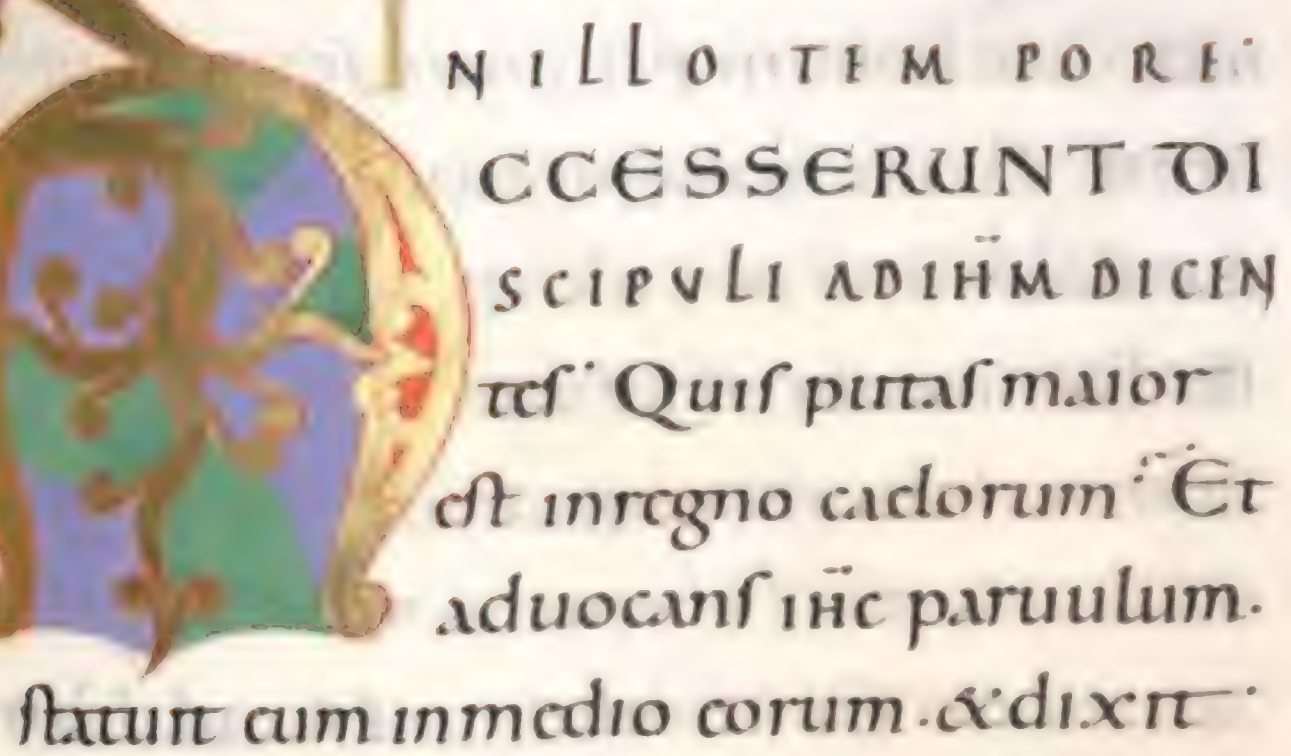 IN ILLO TEMPORE·
ACCESSERUNT DI
SCIPVLI AD IHM DICEN
tes· Quis putas maior
est in regno caelorum· Et
aduocans ihc paruulum·
statuit eum in medio eorum· & dixit·